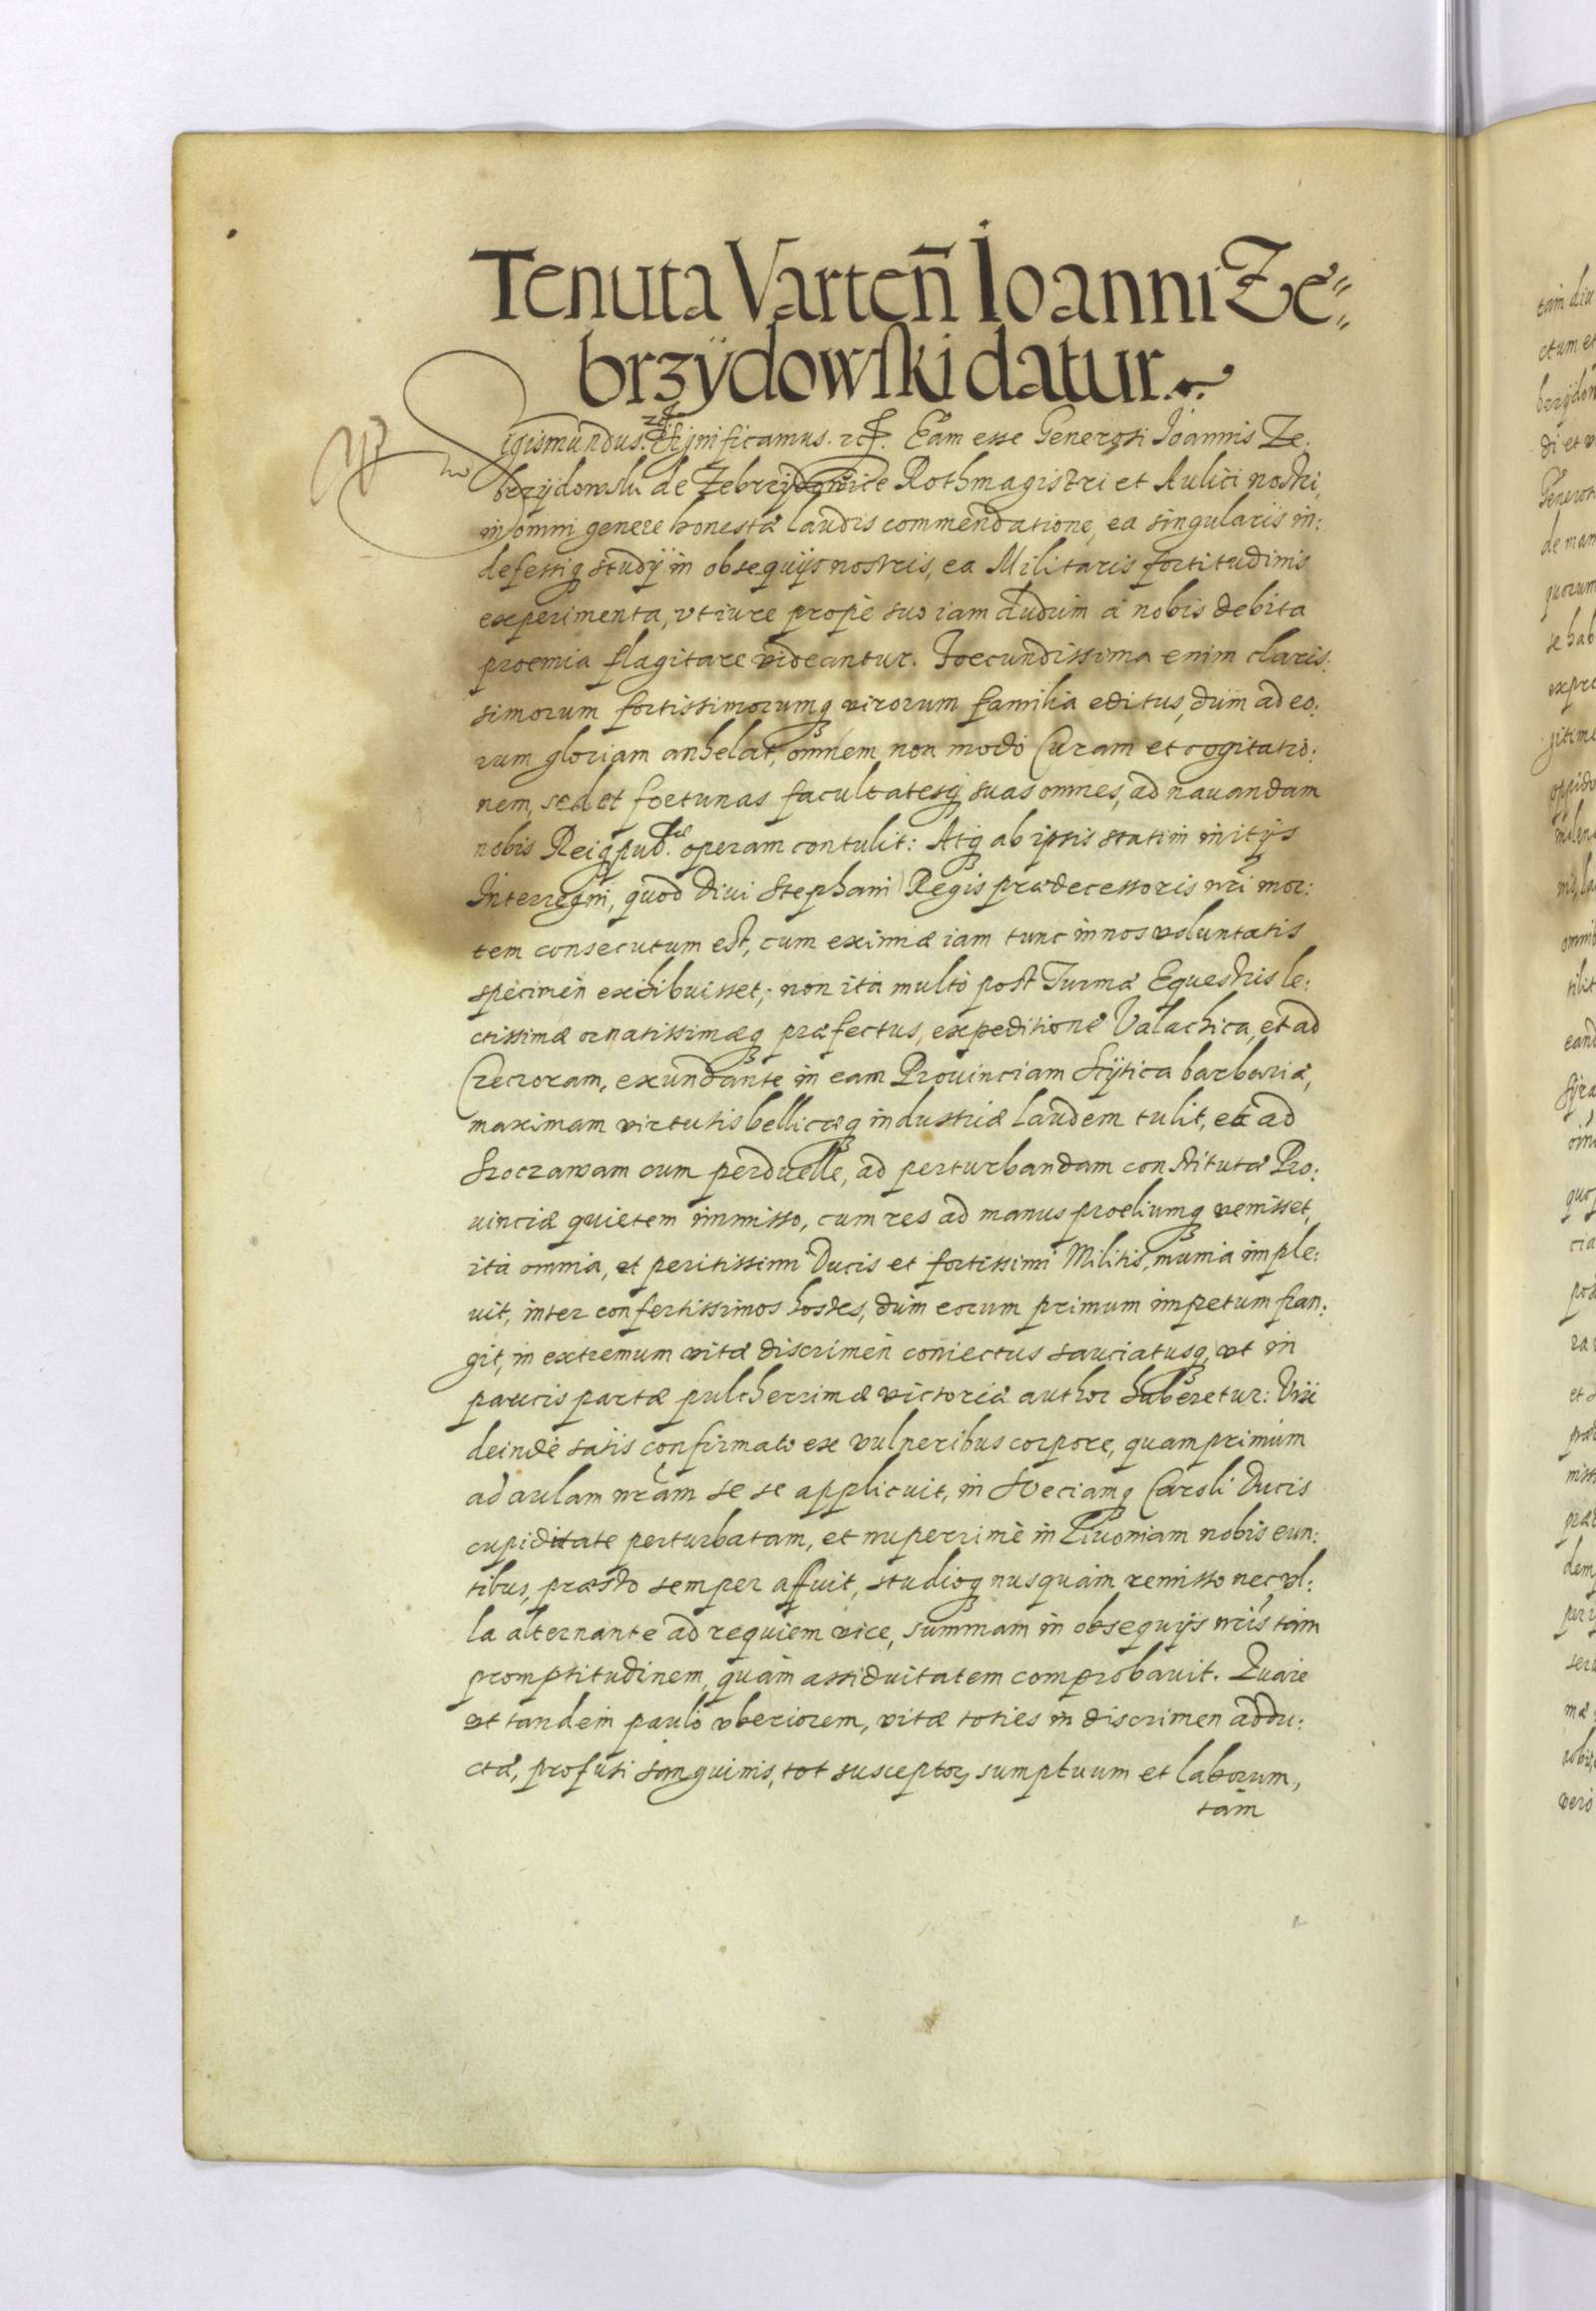 Tenuta Varteñ Ioanni Ze„
brzÿdowski datur.
Sigismundus. Significamus. Eam esse Generosi Ioannis Ze:
brzÿdowski de Zebrzydowice Rothmagistri et Aulici nostri,
in omni genere honestæ laudis commendatione, ea singularis in:
defessiq studÿ in obsequÿs nostris, ea Militaris fortitudinis
experimenta, vt iure propè suo iam dudum à nobis debita
proemia flagitare videantur. Foecundissima enim claris:
simorum fortissimorumq virorum familia editus, dum ad eo:
rum gloriam anhelat, omnem non modò Curam et cogitatio:
nem, sed et fortunas facultatesq suas omnes, ad nauandam
nobis Reiqpub.cæ operam contulit: Atq ab ipsis statim initÿs
Interregni, quod Diui Stephani Regis prædecessoris nri mor:
tem consecutum est, cum eximiæ iam tunc in nos voluntatis
specimen exhibuisset, non ita multò post Turmæ Equestris le:
ctissimæ ornatissimæq præfectus, expeditione Valachica, et ad
Crecroram, exundante in eam Prouinciam Scÿtica barbaria,
maximam virtutis bellicæq industriæ laudem tulit, et ad
Soczawam cum perduelle, ad perturbandam constitutæ Pro:
uinciæ quietem immisso, cum res ad manus proeliumq venisset,
ita omnia, et peritissimi Ducis et fortissimi Militis, munia imple:
uit, inter confertissimos hostes, dum eorum primum impetum fran:
git, in extremum vitæ discrimen coniectus sauciatusq, vt in
paucis partæ pulcherrimæ victoriæ author haberetur: Vix
deindè satis confirmato ex vulneribus corpore, quamprimùm
ad aulam nram se se applicuit, in Sueciamq Caroli Ducis
cupiditate perturbatam, et nuperrimè in Liuoniam nobis eun:
tibus, præsto semper affuit, studioq nusquam remisso nec vl:
la alternante ad requiem vice, summam in obsequÿs nris tam
promptitudinem, quàm assiduitatem comprobauit. Quare
vt tandem paulò vberiorem, vitæ toties in discrimen addu:
ctæ, profusi sanguinis, tot susceptor sumptuum et laborum,
tam